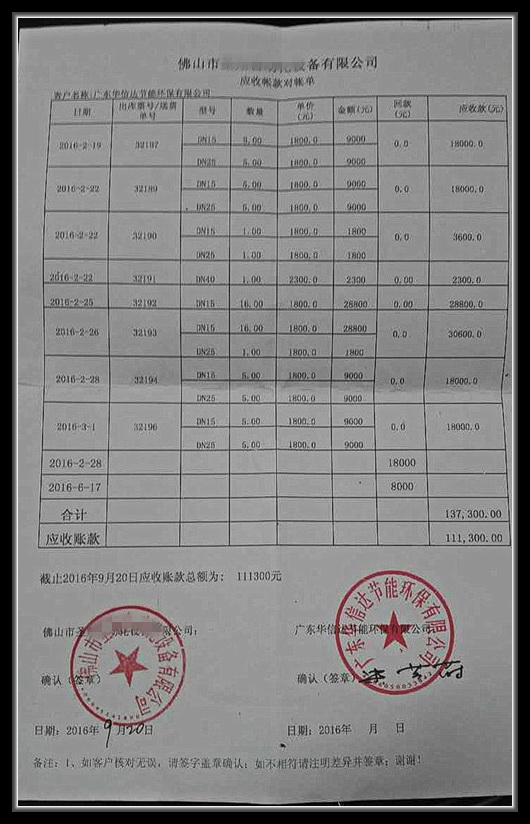 佛山市 设备有限公司
应收帐款对帐单
客户名称:广东华信达节能环保有限公司
日期 出库票号/送货单号 型号 数量 单价(元) 金额(元) 回款(元) 应收款(元)
2016-2-19 32187 DN15 5.00 1800.0 9000 0.0 18000.0
DN25 5.00 1800.0 9000
2016-2-22 32189 DN15 5.00 1800.0 9000 0.0 18000.0
DN25 5.00 1800.0 9000
2016-2-22 32190 DN15 1.00 1800.0 1800 0.0 3600.0
DN25 1.00 1800.0 1800
2016-2-22 32191 DN40 1.00 2300.0 2300 0.00 2300.0
2016-2-25 32192 DN15 16.00 1800.0 28800 0.00 28800.0
2016-2-26 32193 DN15 16.00 1800.0 28800 0.0 30600.0
DN25 1.00 1800.0 1800
2016-2-28 32194 DN15 5.00 1800.0 9000 0.0 18000.0
DN25 5.00 1800.0 9000
2016-3-1 32196 DN15 5.00 1800.0 9000 0.0 18000.0
DN25 5.00 1800.0 9000
2016-2-28 18000
2016-6-17 8000
合计 137,300.00
应收账款 111,300.00
截止2016年9月20日应收账款总额为: 111300元
佛山市 有限公司: 广东华信达节能环保有限公司:
佛山市 设备有限公司
广东华信达节能环保有限公司
确认(签章) 确认(签章)
日期: 2016年9月20日 日期: 2016年 月 日
备注: 1、如客户核对无误, 请签字盖章确认; 如不相符请注明差异并签章; 谢谢!